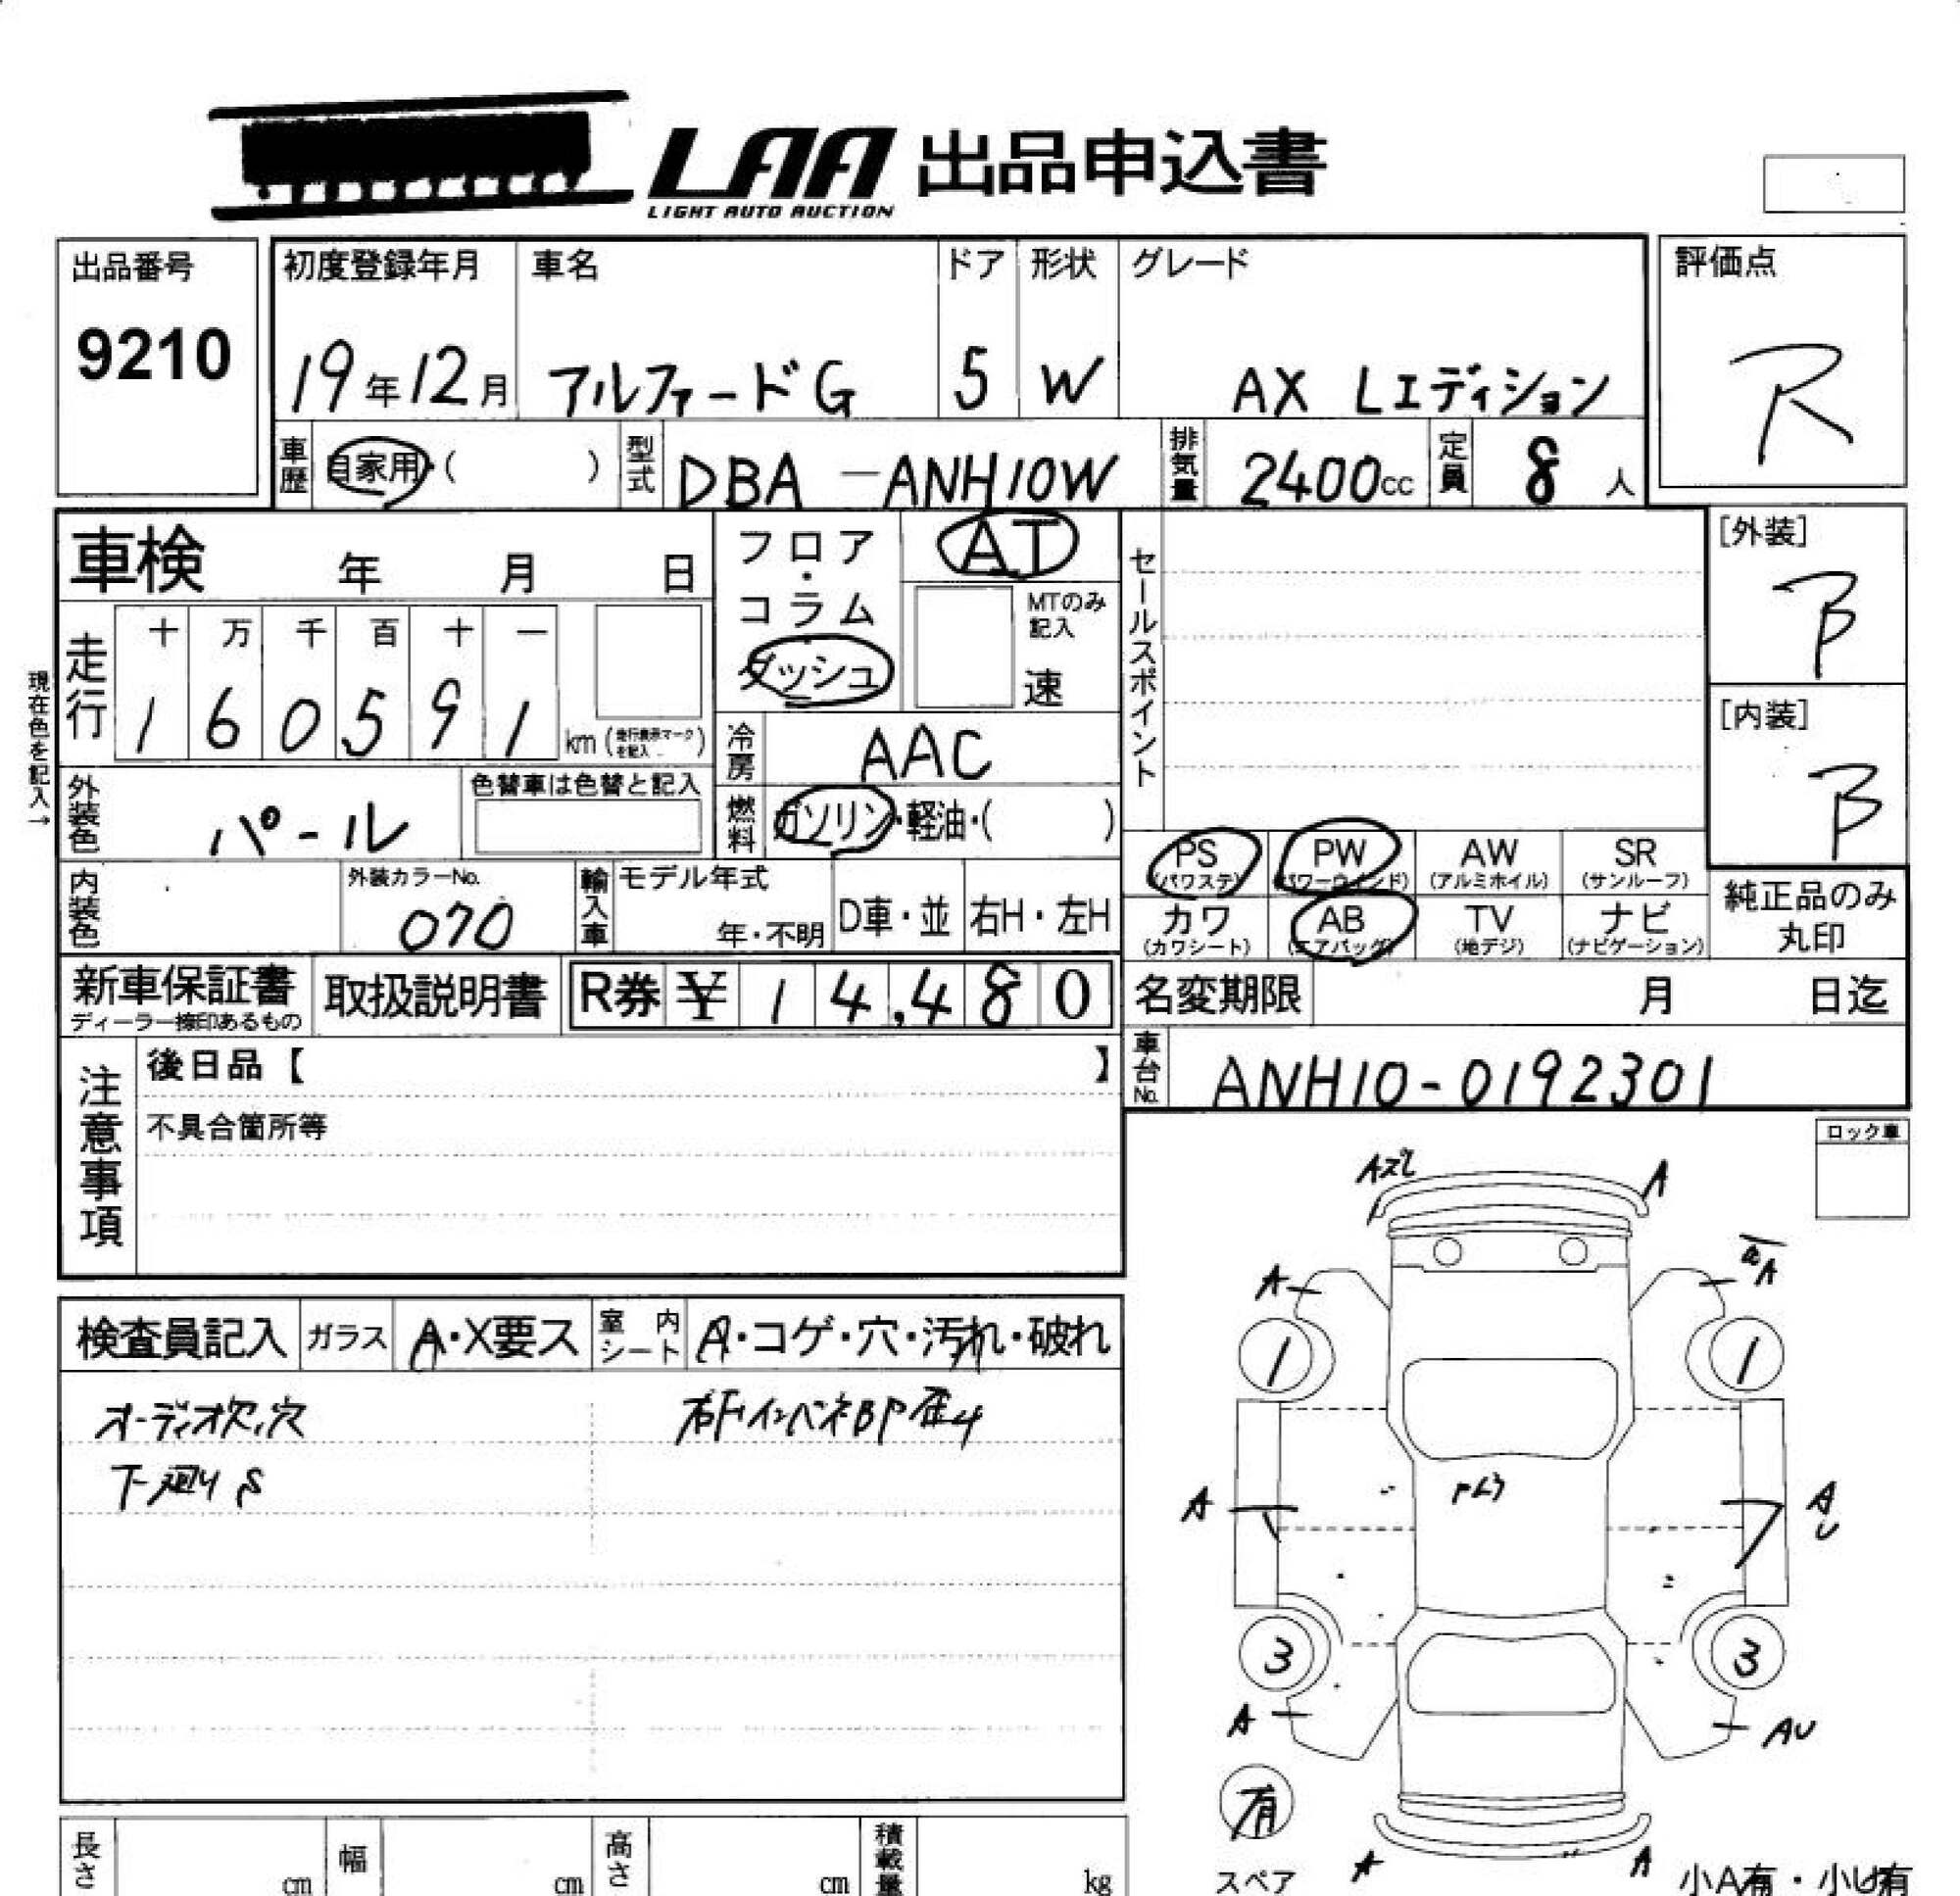 LAA 出品申込書
LIGHT AUTO AUCTION
出品番号
9210
初度登録年月
19年12月
車名
アルファードG
ドア
5
形状
W
グレード
AX Lエディション
評価点
R
車歴
自家用・(　　)
型式
DBA-ANH10W
排気量
2400cc
定員
8人
車検　年　月　日
走行
十 万 千 百 十 一
1 6 0 5 9 1 km
現在色を記入→
フロア・コラム
ダッシュ
AT
MTのみ記入
速
冷房
AAC
燃料
ガソリン・軽油・(　　)
セールスポイント
[外装]
B
[内装]
B
外装色
パール
色替車は色替と記入
内装色
外装カラーNo.
070
輸入車
モデル年式
年・不明
D車・並
右H・左H
PS (パワステ)
PW (パワーウインド)
AW (アルミホイル)
SR (サンルーフ)
カワ (カワシート)
AB (エアバッグ)
TV (地デジ)
ナビ (ナビゲーション)
純正品のみ
丸印
新車保証書
ディーラー捺印あるもの
取扱説明書
R券 ¥ 14,480
名変期限　月　日迄
車台No.
ANH10-0192301
注意事項
後日品【　　】
不具合箇所等
ロック車
検査員記入
ガラス
A・X要ス
室内シート
A・コゲ・穴・汚れ・破れ
オーディオ欠,穴
下廻りS
右Fインパネ
Aズレ
A
A
A
1
1
A
A
U
3
3
A
AU
有
スペア
A
A
小A有・小U有
長さ
cm
幅
cm
高さ
cm
積載量
kg